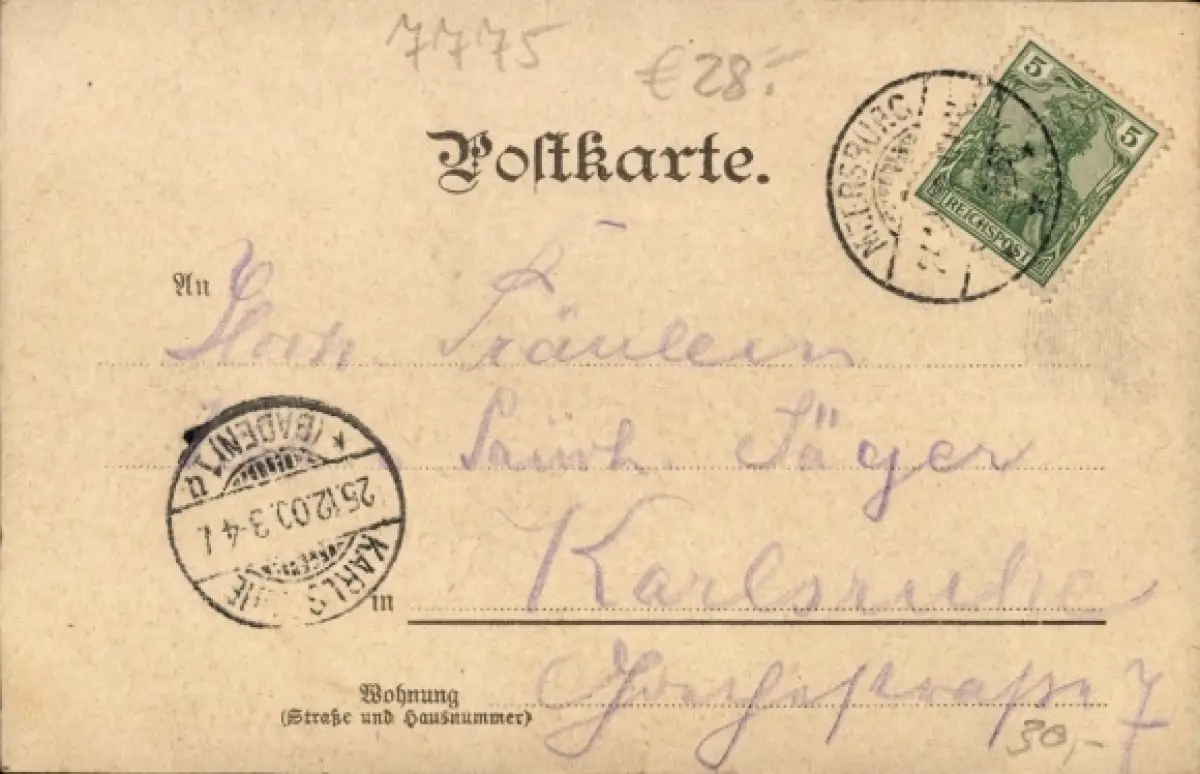 7775
€ 28.-
Postkarte.
5 5
REICHSPOST
MEERSBURG
An
Fräulein
Jäger
(BADEN) 1
25.12.00. 3-4
KARLSRUHE
in Karlsruhe
Wohnung
(Straße und Hausnummer)
Goethestraße 7
30,-